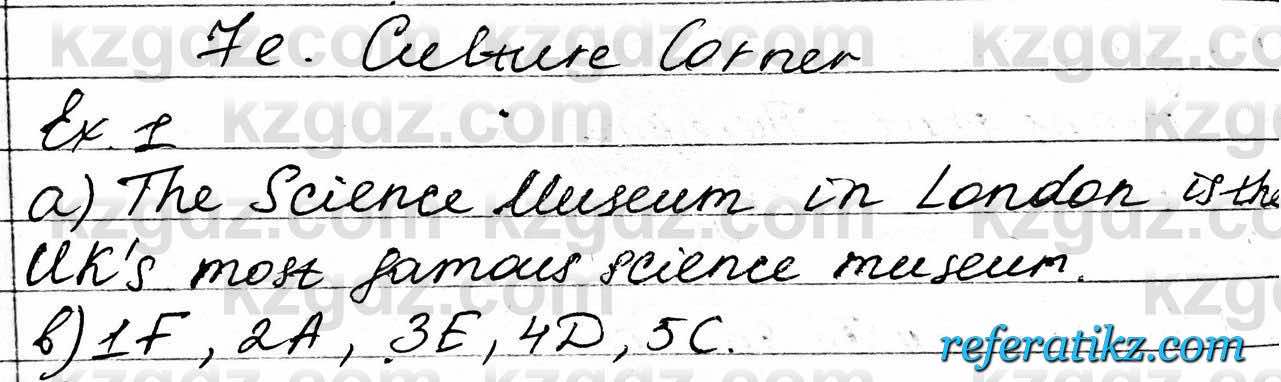 7e. Culture Corner
Ex. 1
a) The Science Museum in London is the
UK's most famous science museum.
b) 1F, 2A, 3E, 4D, 5C.
referatikz.com